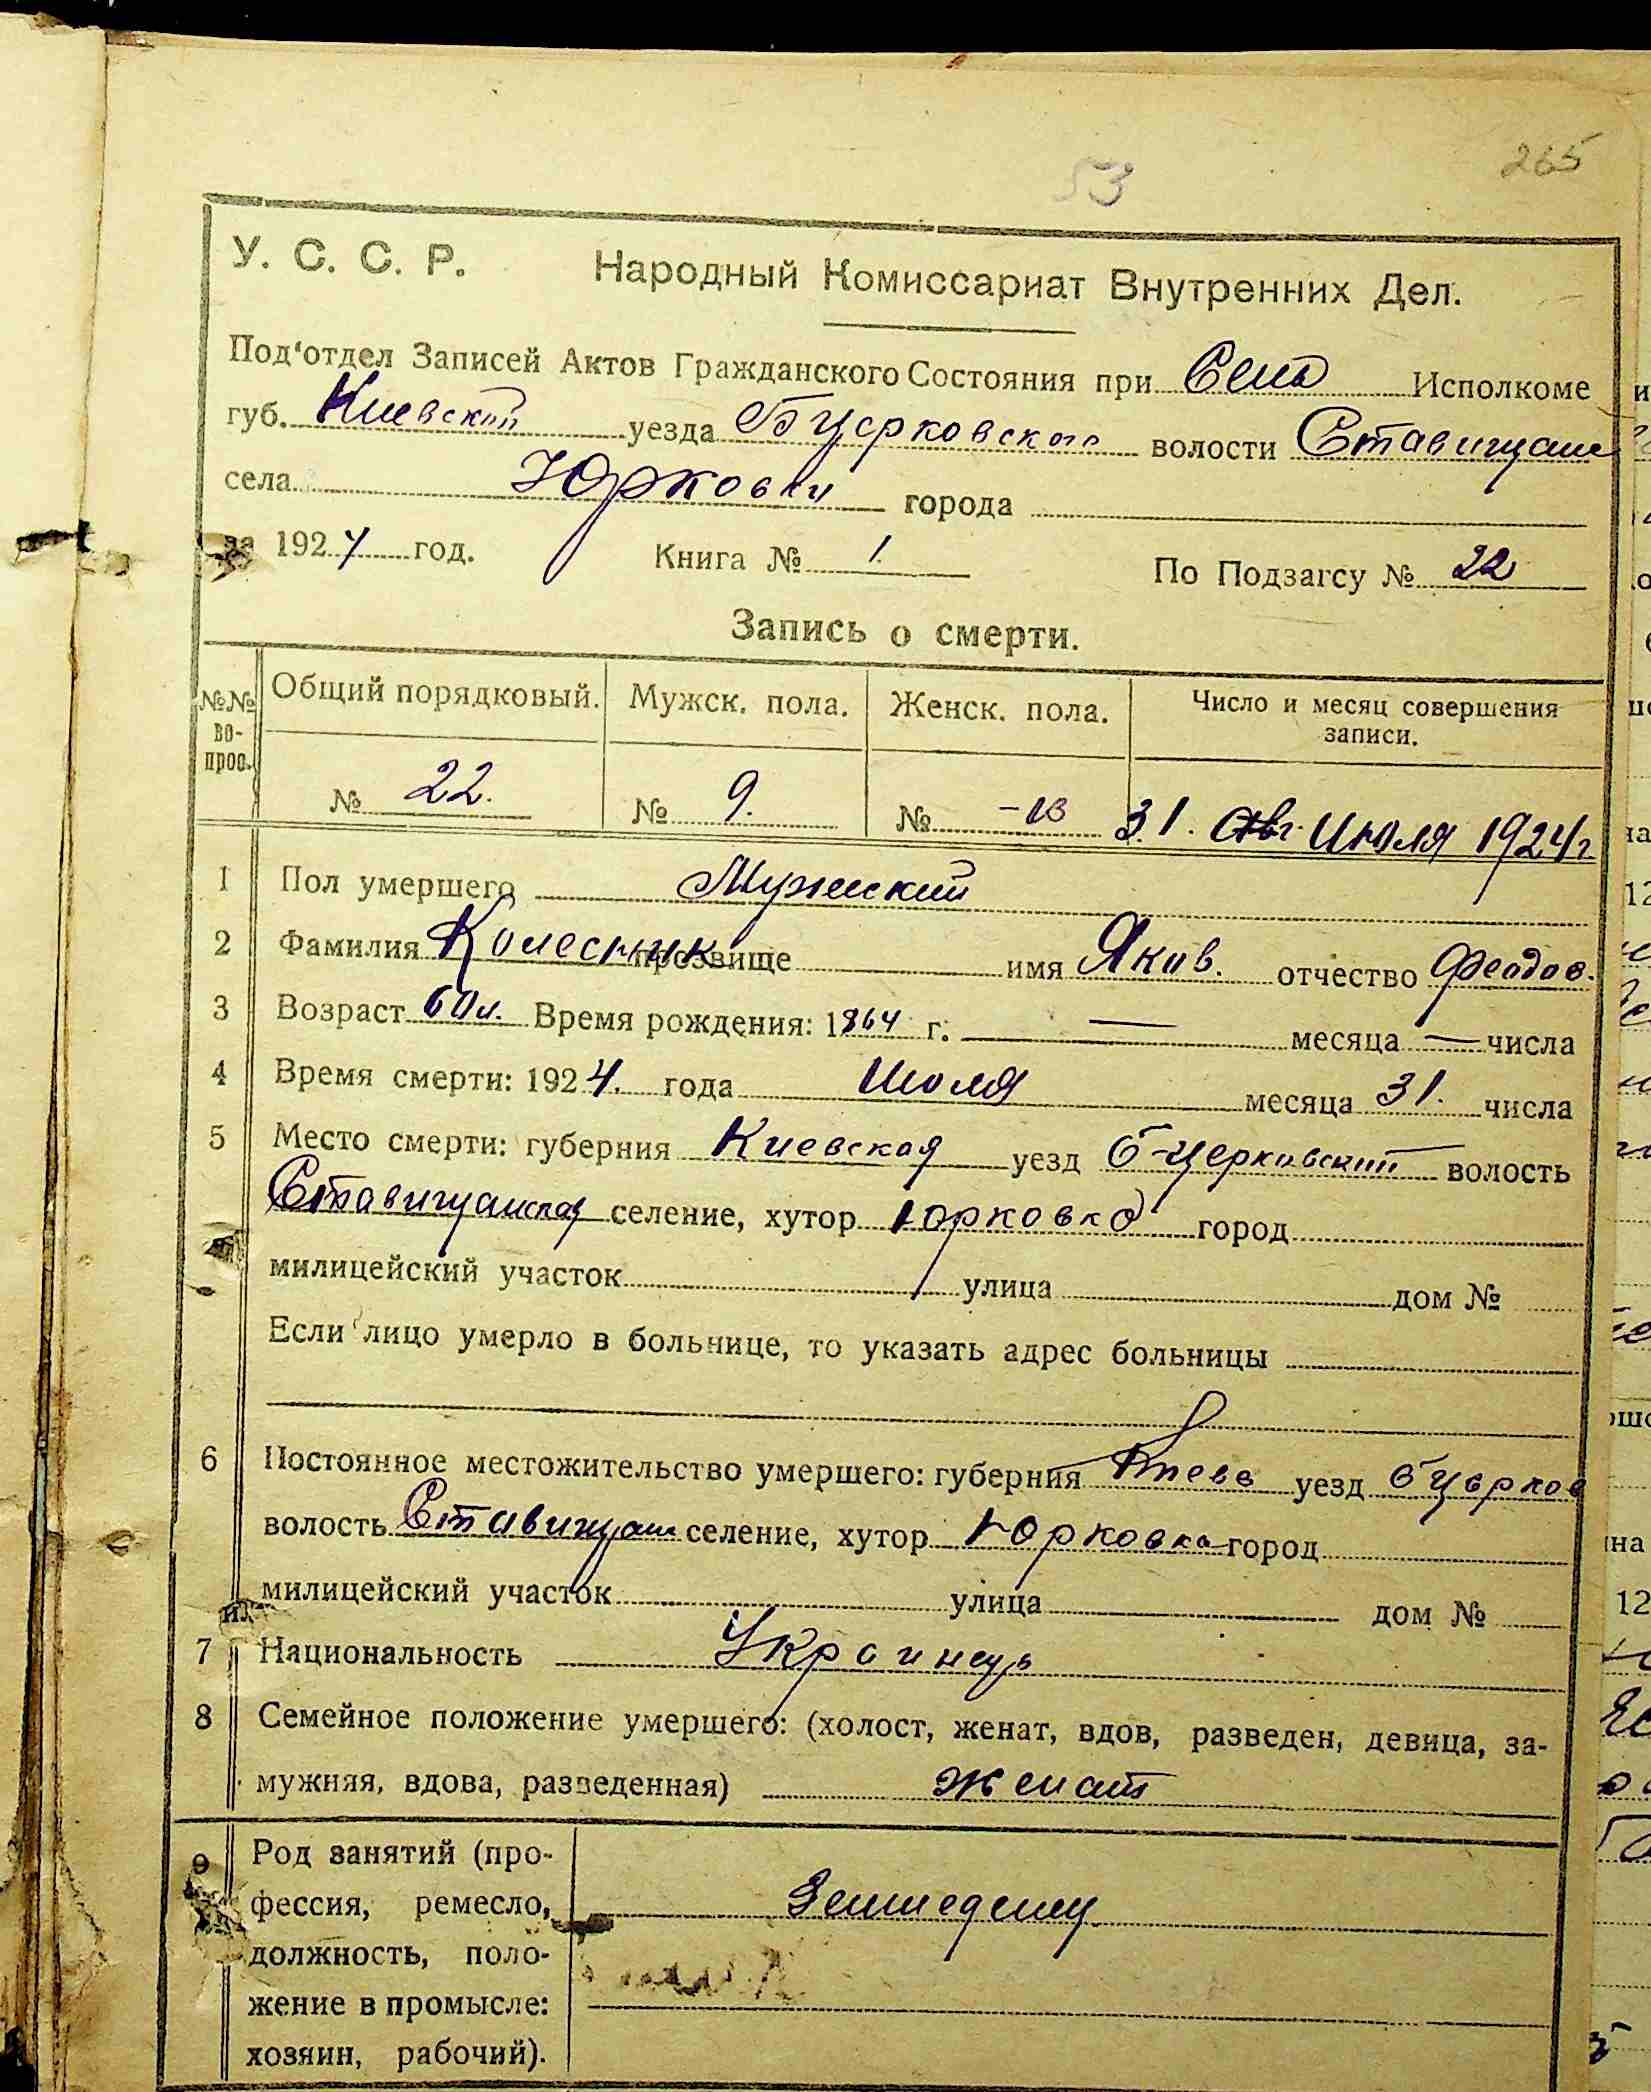 265
53
У. С. С. Р. Народный Комиссариат Внутренних Дел.
Под'отдел Записей Актов Гражданского Состояния при Исполкоме
губ. Киевской уезда Бцерковского волости Ставищан
села Юрковки города
за 1924 год. Книга № 1. По Подзагсу № 22
Запись о смерти.
№№ во- прос. Общий порядковый. Мужск. пола. Женск. пола. Число и месяц совершения записи.
№ 22. № 9. № -13 31. Авг Июля 1924 г.
1 Пол умершего Мужеский
2 Фамилия Колесник прозвище имя Яков. отчество Феодос.
3 Возраст 60 л. Время рождения: 1864 г. — месяца — числа
4 Время смерти: 1924. года Июля месяца 31. числа
5 Место смерти: губерния Киевская уезд Б-церковский волость
Ставищанская селение, хутор Юрковка город
милицейский участок улица дом №
Если лицо умерло в больнице, то указать адрес больницы
6 Постоянное местожительство умершего: губерния Киевс уезд бцерков
волость Ставищан селение, хутор Юрковка город
милицейский участок улица дом №
7 Национальность Украинець
8 Семейное положение умершего: (холост, женат, вдов, разведен, девица, за-
мужняя, вдова, разведенная) Женат
9 Род занятий (про-
фессия, ремесло,
должность, поло-
жение в промысле:
хозяин, рабочий).